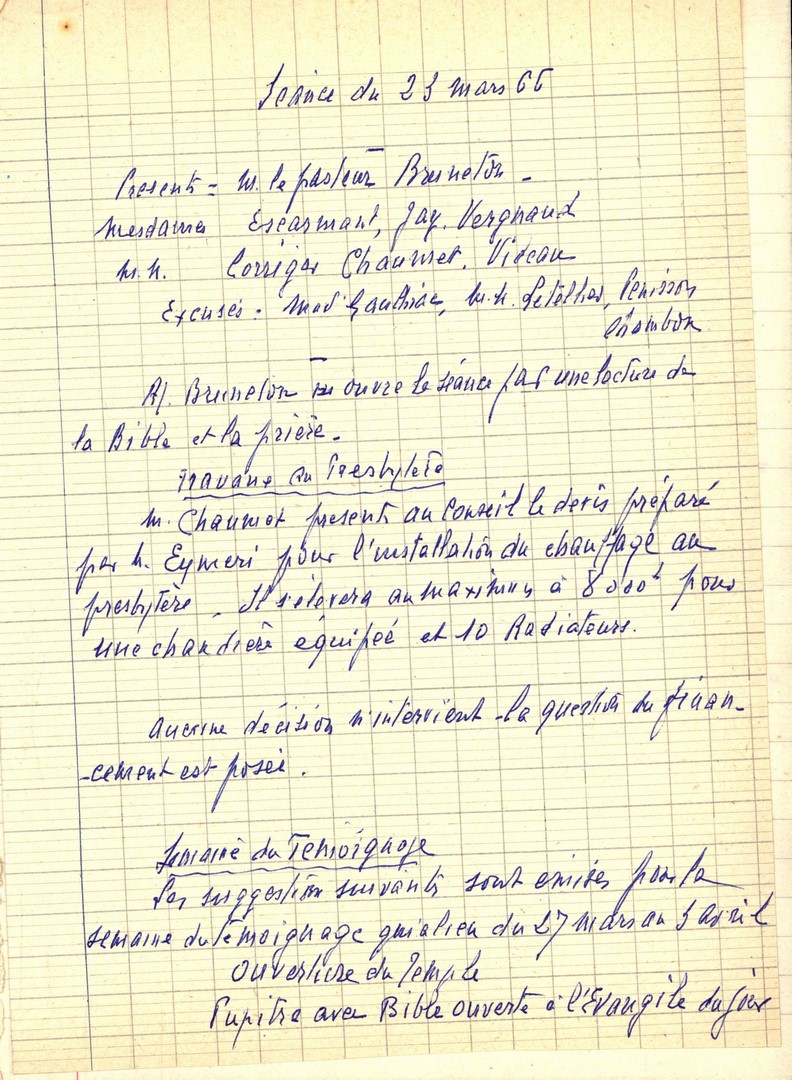 Séance du 23 mars 66
Presents = M. le pasteur Bruneton -
Mesdames Escarmant, Jay. Vergnaud
M.M. Corriger Chaumet. Videau
Excusés. Mad. Gauthier, M.M. Letellier, Penisson
Chambon
M. Bruneton ouvre la séance par une lecture de
la Bible et la prière.
Travaux au Presbytère
M. Chaumet presente au Conseil le devis préparé
par M. Eymeri pour l'installation du chauffage au
presbytère. Il s'élevera au maximum à 8000f pour
une chaudière équipée et 10 Radiateurs.
Aucune décision n'intervient - la question du finan-
-cement est posée.
Semaine du Témoignage
Les suggestions suivantes sont émises pour la
semaine du témoignage qui a lieu du 27 mars au 3 avril
Ouverture du Temple
Pupitre avec Bible ouverte à l'Evangile du jour